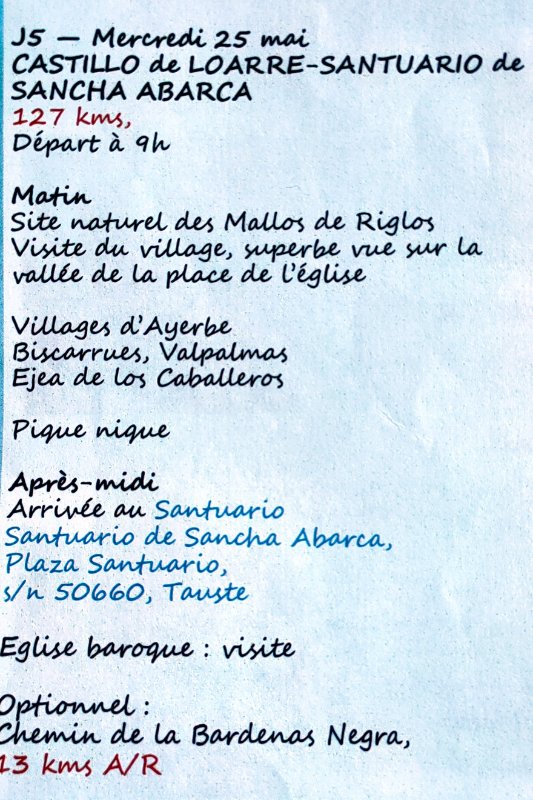 J5 — Mercredi 25 mai
CASTILLO de LOARRE-SANTUARIO de
SANCHA ABARCA
127 kms,
Départ à 9h
Matin
Site naturel des Mallos de Riglos
Visite du village, superbe vue sur la
vallée de la place de l'église
Villages d'Ayerbe
Biscarrues, Valpalmas
Ejea de los Caballeros
Pique nique
Après-midi
Arrivée au Santuario
Santuario de Sancha Abarca,
Plaza Santuario,
s/n 50660, Tauste
Eglise baroque : visite
Optionnel :
Chemin de la Bardenas Negra,
13 kms A/R